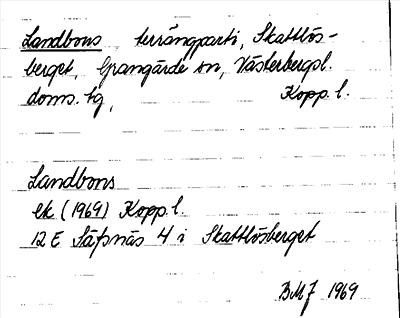 Landbons, terrängparti, Skattlös-
berget, Grangärde sn, Västerbergsl.
doms. tg, Kopp. l.
Landbons
ek (1969) Kopp. l.
12 E Säfsnäs 4 i Skattlösberget
BMJ 1969